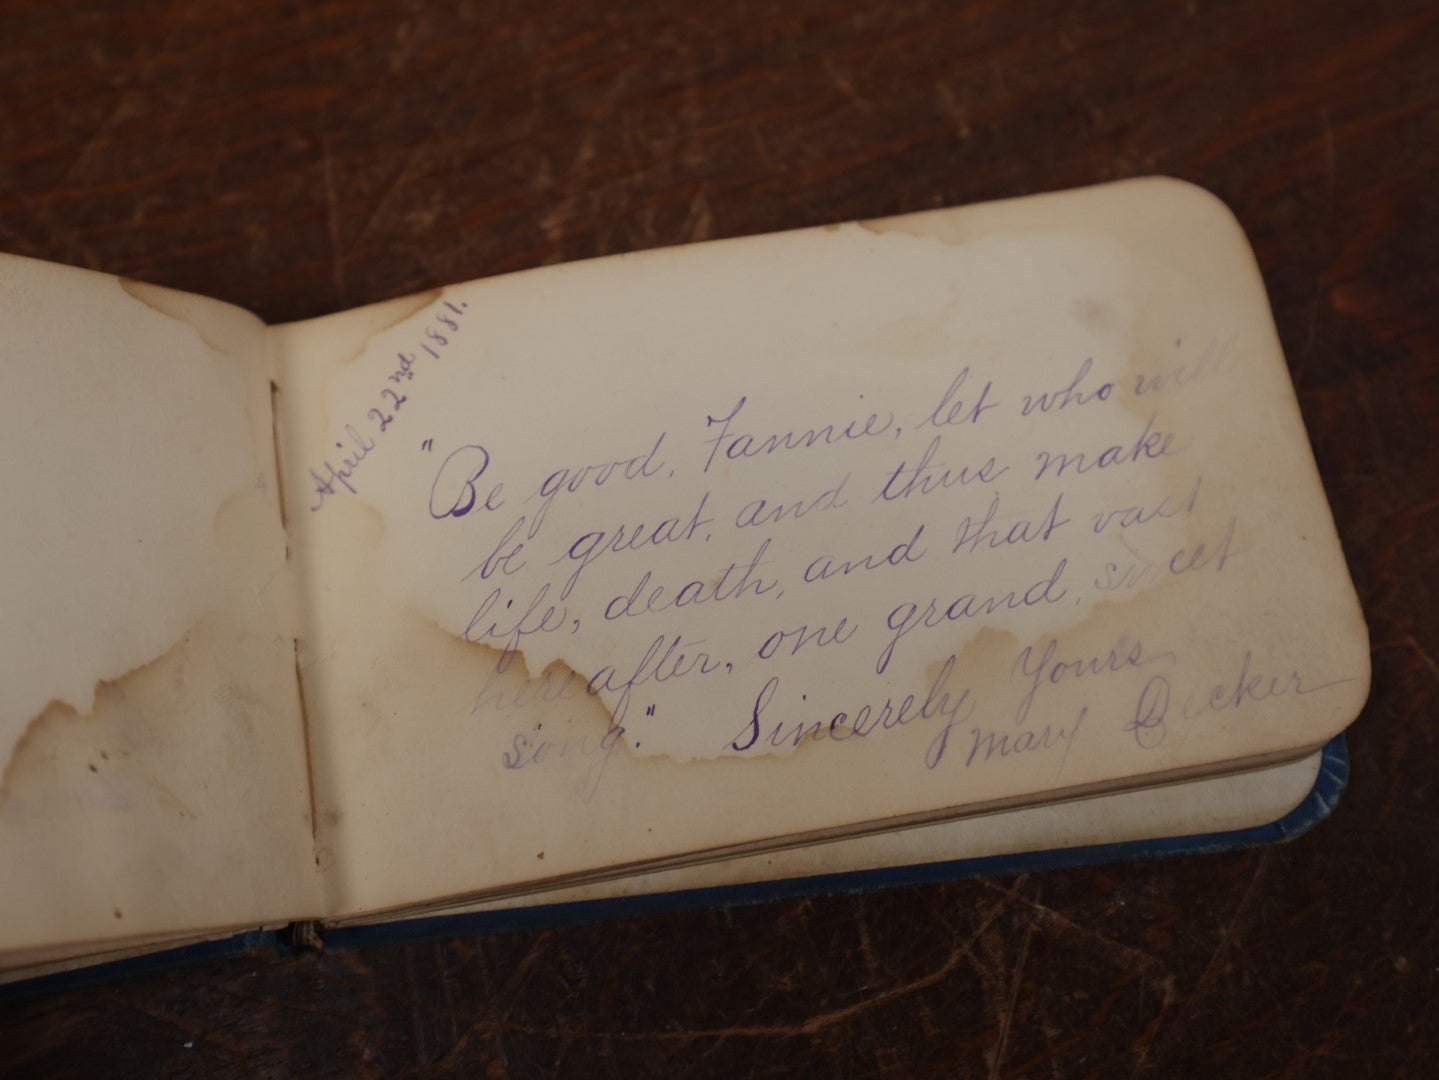 April 22nd 1881.
"Be good, Fannie, let who will
be great, and thus make
life, death, and that vast
hereafter, one grand, sweet
song." Sincerely Yours
Mary Becker